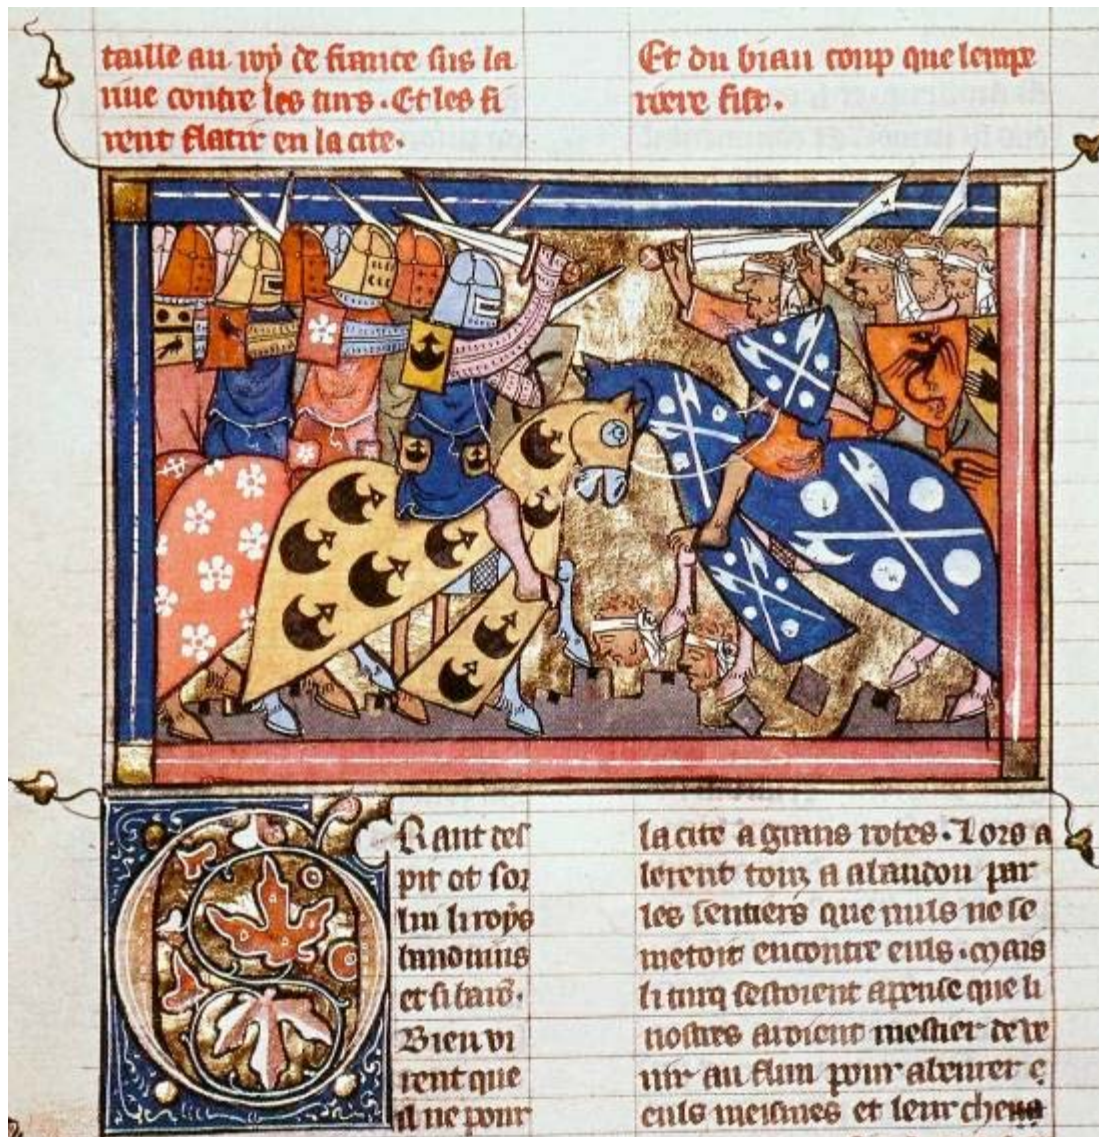 taille au roy de france sus la
riue contre les turs. Et les fi
rent flatir en la cite.
Et du biau coup que lempe
riere fist.
GRant des
pit ot sor
lui li roys
baudouins
et si barō.
Bien vi
rent que
il ne pour
la cite a grans rotes. Lors a
lerent touz a abandon par
les sentiers que nuls ne se
metoit encontre euls. mais
li turq sestoient apense que li
nostres auoient mestier de ve
nir au flun pour abeurer
euls meismes et leur cheua